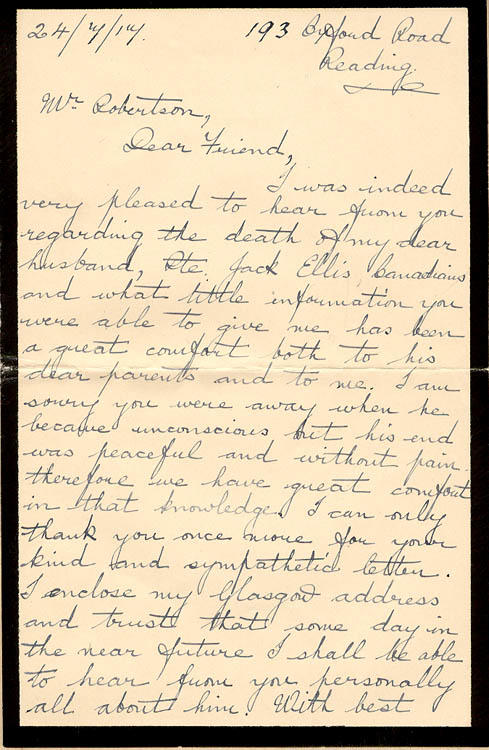 24/7/17. 193 Oxford Road
Reading.
Mr Robertson,
Dear Friend,
I was indeed
very pleased to hear from you
regarding the death of my dear
husband, Pte. Jack Ellis, Canadians
and what little information you
were able to give me has been
a great comfort both to his
dear parents and to me. I am
sorry you were away when he
became unconscious but his end
was peaceful and without pain
therefore we have great comfort
in that knowledge. I can only
thank you once more for your
kind and sympathetic letter.
I enclose my Glasgow address
and trust that some day in
the near future I shall be able
to hear from you personally
all about him. With best